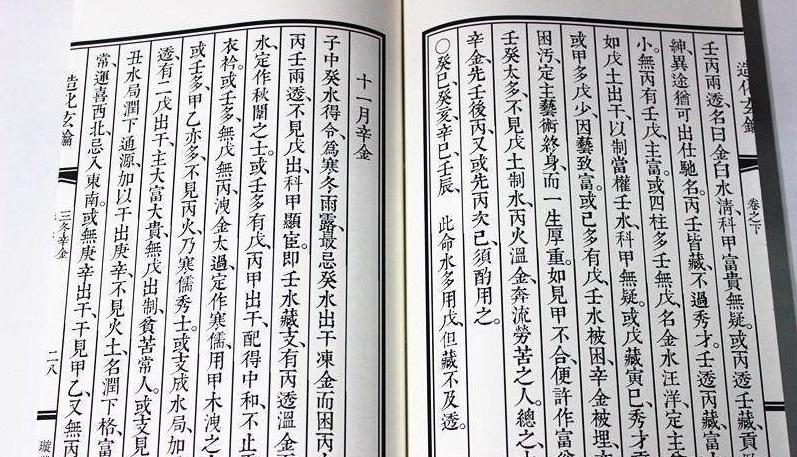 造化玄鑰
卷之下
壬丙兩透名曰金白水清、科甲富貴無疑。或丙透壬藏、貢
紳、異途猶可出仕馳名。丙壬皆藏、不過秀才。壬透丙藏、富
小。無丙有壬戊、主富。或四柱多壬無戊、名金水汪洋、定主
如戊土出干以制當權壬水、科甲無疑。或戊藏寅巳、秀才
或甲多戊少、因藝致富。或己多有戊、壬水被困、辛金被埋、
困汚、定主藝術終身、而一生厚重。如見甲不合、便許作富
壬癸太多、不見戊土制水、丙火溫金、奔流勞苦之人。總之、
辛金先壬後丙、又或先丙次己、須酌用之。
〇癸巳、癸亥、辛巳、壬辰、 此命水多用戊、但藏不及透。
十一月辛金
子中癸水得令、爲寒冬雨露、最忌癸水出干凍金而困丙
丙壬兩透、不見戊出、科甲顯宦。即壬水藏支、有丙透溫金
水、定作秋闈之士。或壬多有戊、丙甲出干、配得中和、不止
衣衿。或壬多、無戊無丙、洩金太過、定作寒儒、用甲木洩之
或壬多、甲乙亦多、不見丙火、乃寒儒秀士。或支成水局、加
透、有二戊出干、主大富大貴、無戊出制、貧苦常人。或支見
丑水局、潤下通源、加以干出庚辛、不見火土、名潤下格、富
常、運喜西北、忌入東南。或無庚辛出干、干見甲乙、又無丙
造化玄鑰
三冬辛金
二八